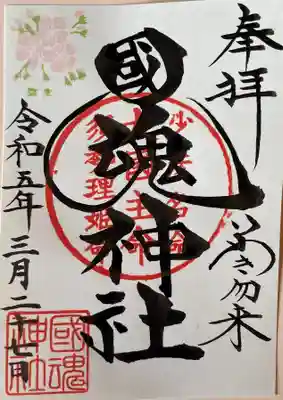 奉拝
いわき勿来
國魂神社
令和五年三月二十七日
弥生
國魂
神社